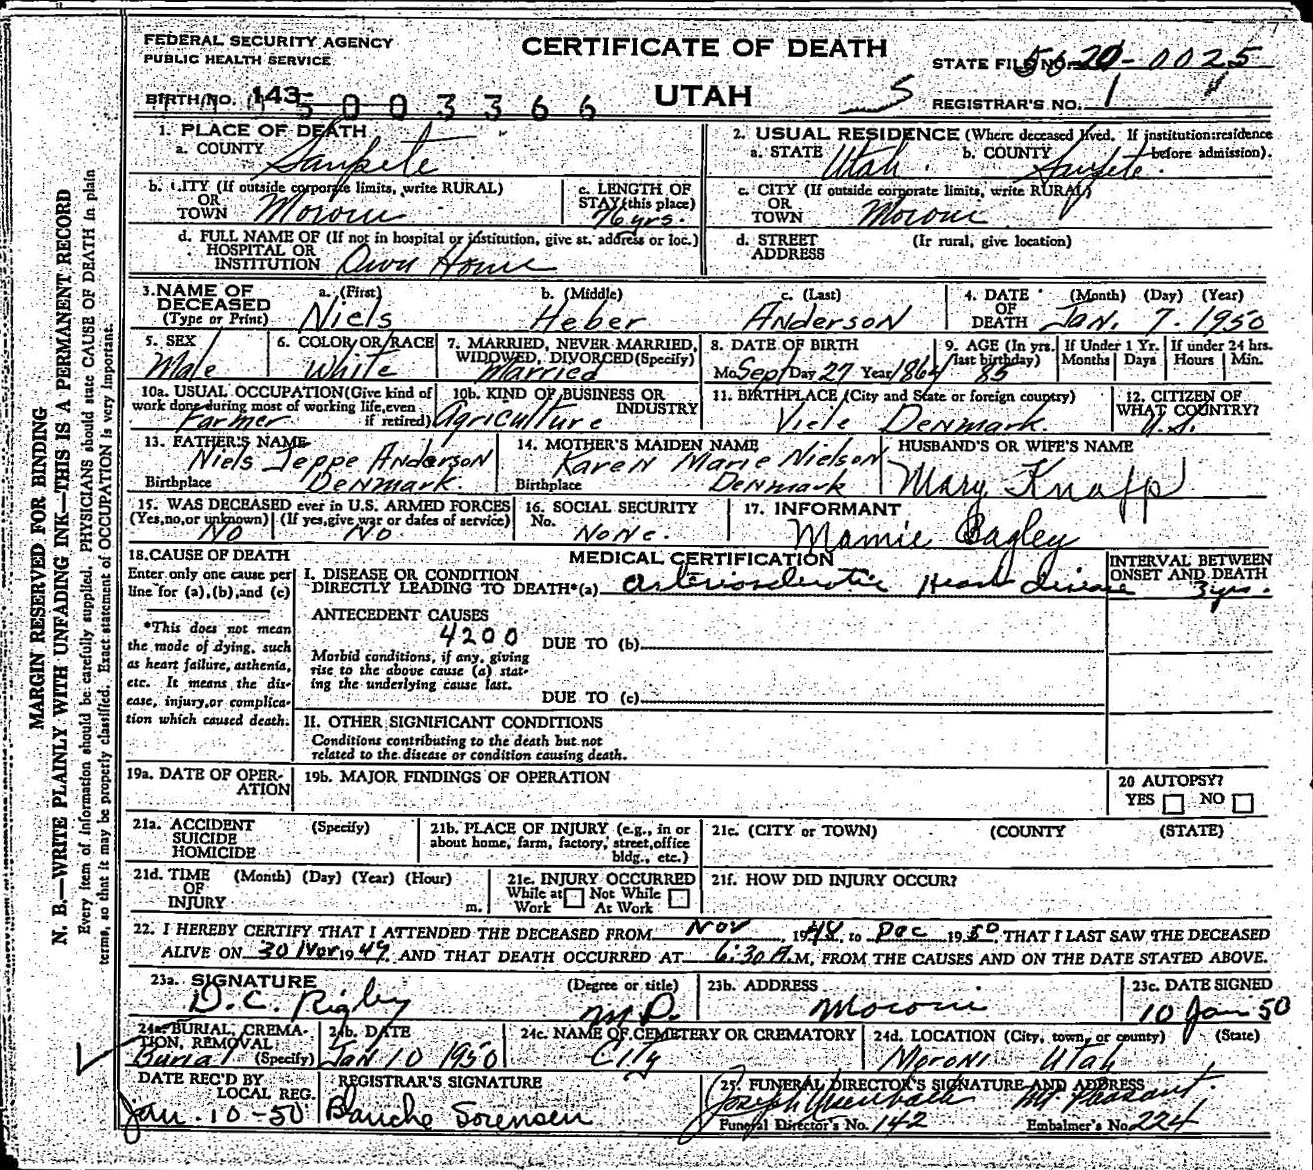 FEDERAL SECURITY AGENCY
PUBLIC HEALTH SERVICE
CERTIFICATE OF DEATH
STATE FILE NO. 20-0025
BIRTH NO. 143-
5003366
UTAH
5
REGISTRAR'S NO. 1
1. PLACE OF DEATH
a. COUNTY Sanpete
2. USUAL RESIDENCE (Where deceased lived. If institution: residence before admission).
a. STATE Utah b. COUNTY Sanpete
b. CITY (If outside corporate limits, write RURAL) OR TOWN Moroni
c. LENGTH OF STAY (this place) 76 yrs.
c. CITY (If outside corporate limits, write RURAL) OR TOWN Moroni
d. FULL NAME OF (If not in hospital or institution, give st. address or loc.) HOSPITAL OR INSTITUTION Own Home
d. STREET ADDRESS (If rural, give location)
3. NAME OF DECEASED (Type or Print)
a. (First) Niels
b. (Middle) Heber
c. (Last) Anderson
4. DATE OF DEATH (Month) (Day) (Year) Jan. 7. 1950
5. SEX Male
6. COLOR OR RACE White
7. MARRIED, NEVER MARRIED, WIDOWED, DIVORCED (Specify) Married
8. DATE OF BIRTH Mo Sept Day 27 Year 1864
9. AGE (In yrs. last birthday) 85
If Under 1 Yr. Months Days
If under 24 hrs. Hours Min.
10a. USUAL OCCUPATION (Give kind of work done during most of working life, even if retired) Farmer
10b. KIND OF BUSINESS OR INDUSTRY Agriculture
11. BIRTHPLACE (City and State or foreign country) Viele Denmark
12. CITIZEN OF WHAT COUNTRY? U.S.
13. FATHER'S NAME Niels Jeppe Anderson
Birthplace Denmark
14. MOTHER'S MAIDEN NAME Karen Marie Nielson
Birthplace Denmark
HUSBAND'S OR WIFE'S NAME Mary Knapp
15. WAS DECEASED ever in U.S. ARMED FORCES
(Yes, no, or unknown) No
(If yes, give war or dates of service) No.
16. SOCIAL SECURITY No. None.
17. INFORMANT Mamie Bagley
18. CAUSE OF DEATH
Enter only one cause per line for (a), (b), and (c)
*This does not mean the mode of dying, such as heart failure, asthenia, etc. It means the disease, injury, or complication which caused death.
MEDICAL CERTIFICATION
INTERVAL BETWEEN ONSET AND DEATH
I. DISEASE OR CONDITION DIRECTLY LEADING TO DEATH* (a) arteriosclerotic Heart disease 3 yrs.
ANTECEDENT CAUSES
4200
DUE TO (b)
Morbid conditions, if any, giving rise to the above cause (a) stating the underlying cause last.
DUE TO (c)
II. OTHER SIGNIFICANT CONDITIONS
Conditions contributing to the death but not related to the disease or condition causing death.
19a. DATE OF OPERATION
19b. MAJOR FINDINGS OF OPERATION
20 AUTOPSY? YES NO
21a. ACCIDENT SUICIDE HOMICIDE (Specify)
21b. PLACE OF INJURY (e.g., in or about home, farm, factory, street, office bldg., etc.)
21c. (CITY or TOWN) (COUNTY (STATE)
21d. TIME OF INJURY (Month) (Day) (Year) (Hour) m.
21e. INJURY OCCURRED While at Work Not While At Work
21f. HOW DID INJURY OCCUR?
22. I HEREBY CERTIFY THAT I ATTENDED THE DECEASED FROM Nov, 1948, to Dec 1950, THAT I LAST SAW THE DECEASED
ALIVE ON 30 Nov 1949, AND THAT DEATH OCCURRED AT 6:30 A.M, FROM THE CAUSES AND ON THE DATE STATED ABOVE.
23a. SIGNATURE D.C. Rigby (Degree or title) M.D.
23b. ADDRESS Moroni
23c. DATE SIGNED 10 Jan 50
24a. BURIAL, CREMATION, REMOVAL (Specify) Burial
24b. DATE Jan 10 1950
24c. NAME OF CEMETERY OR CREMATORY City
24d. LOCATION (City, town, or county) (State) Moroni Utah
DATE REC'D BY LOCAL REG. Jan. 10-50
REGISTRAR'S SIGNATURE Blanche Sorensen
25. FUNERAL DIRECTOR'S SIGNATURE AND ADDRESS Joseph Mt Pleasant
Funeral Director's No. 142 Embalmer's No 224
MARGIN RESERVED FOR BINDING
N. B.—WRITE PLAINLY WITH UNFADING INK—THIS IS A PERMANENT RECORD
Every item of information should be carefully supplied. PHYSICIANS should state CAUSE OF DEATH in plain
terms, so that it may be properly classified. Exact statement of OCCUPATION is very important.